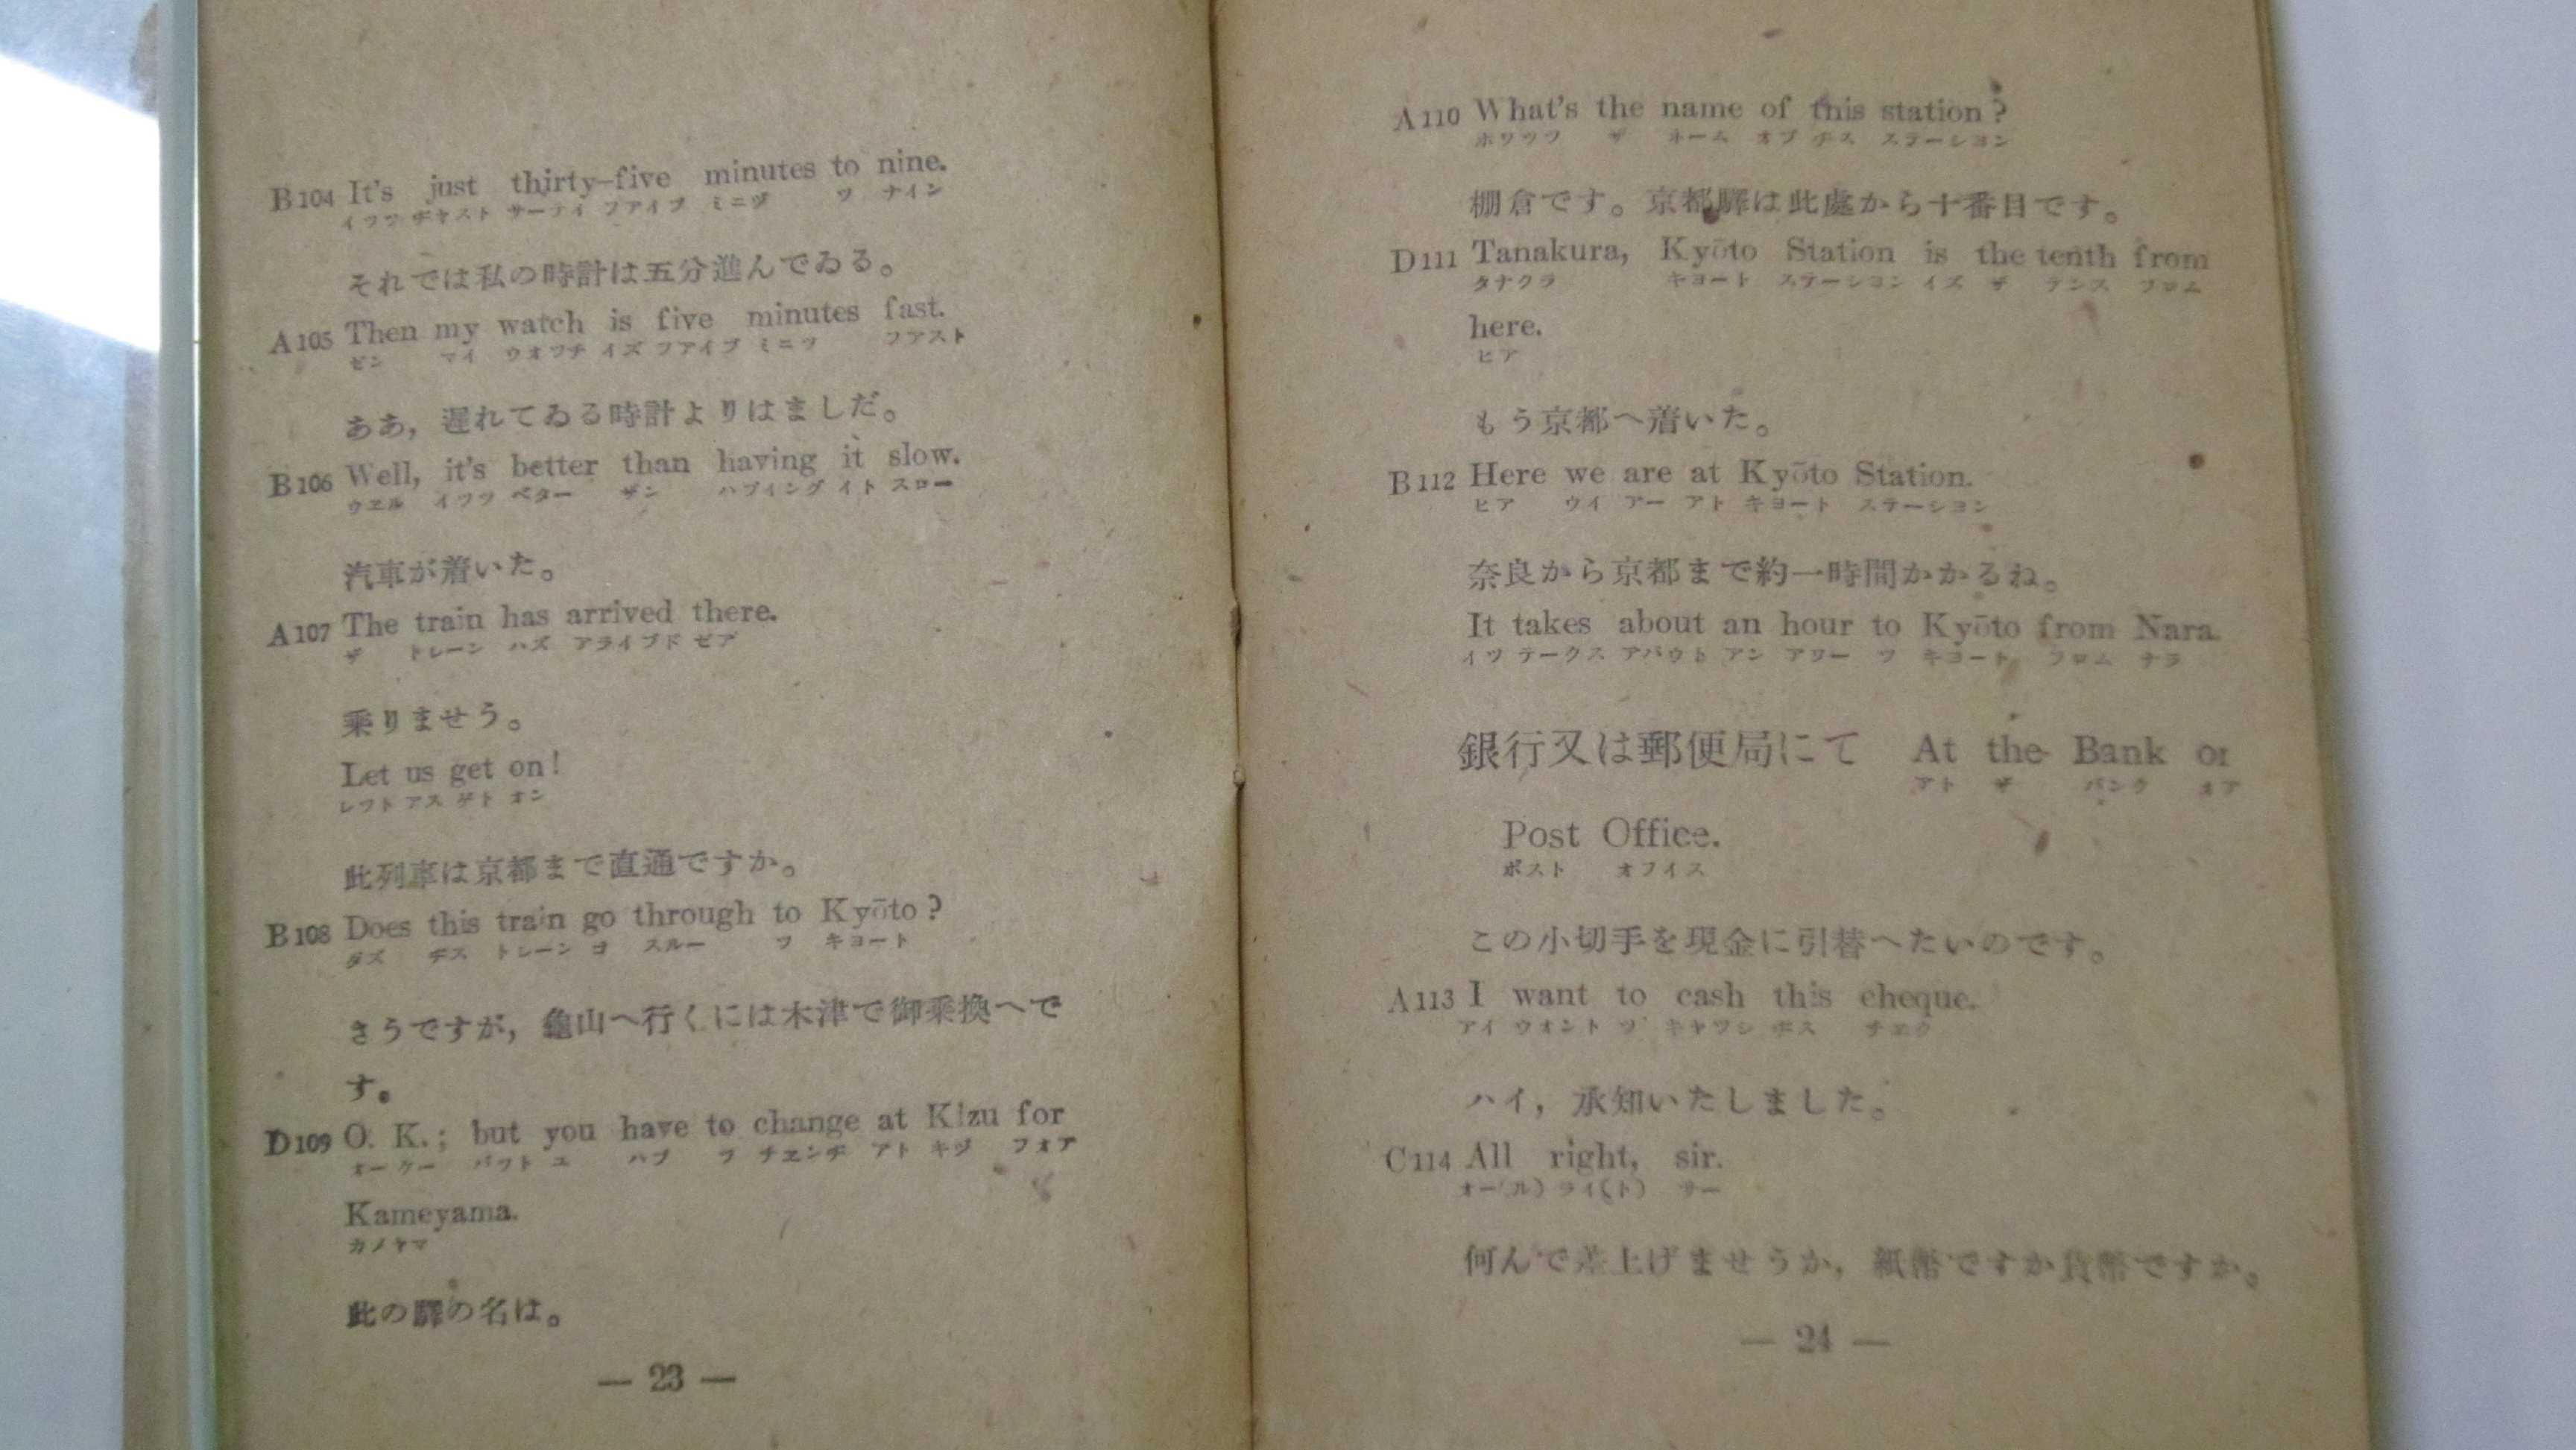 B104 It's just thirty-five minutes to nine.
イッツ ヂヤスト サーテイ フアイブ ミニヅ ツ ナイン
それでは私の時計は五分進んでゐる。
A105 Then my watch is five minutes fast.
ゼン マイ ウオツチ イズ フアイブ ミニツ フアスト
ああ，遅れてゐる時計よりはましだ。
B106 Well, it's better than having it slow.
ウエル イツツ ベター ザン ハブイング イト スロー
汽車が着いた。
A107 The train has arrived there.
ザ トレーン ハズ アライブド ゼア
乗りませう。
Let us get on!
レツト アス ゲト オン
此列車は京都まで直通ですか。
B108 Does this train go through to Kyōto?
ダズ ヂス トレーン ゴ スルー ツ キヨート
さうですが，龜山へ行くには木津で御乗換へで
す。
D109 O. K.; but you have to change at Kizu for
オー ケー バツト ユ ハブ ツ チエンヂ アト キヅ フオア
Kameyama.
カメヤマ
此の驛の名は。
— 23 —
A110 What's the name of this station?
ホワツツ ザ ネーム オブ ヂス ステーシヨン
棚倉です。京都驛は此處から十番目です。
D111 Tanakura, Kyōto Station is the tenth from
タナクラ キヨート ステーシヨン イズ ザ テンス フロム
here.
ヒア
もう京都へ着いた。
B112 Here we are at Kyōto Station.
ヒア ウイ アー アト キヨート ステーシヨン
奈良から京都まで約一時間かかるね。
It takes about an hour to Kyōto from Nara.
イツ テークス アバウト アン アワー ツ キヨート フロム ナラ
銀行又は郵便局にて At the Bank or
アト ザ バンク オア
Post Office.
ポスト オフイス
この小切手を現金に引替へたいのです。
A113 I want to cash this cheque.
アイ ウオント ツ キヤツシ ヂス チエク
ハイ，承知いたしました。
C114 All right, sir.
オー(ル) ライ(ト) サー
何んで差上げませうか，紙幣ですか貨幣ですか。
— 24 —